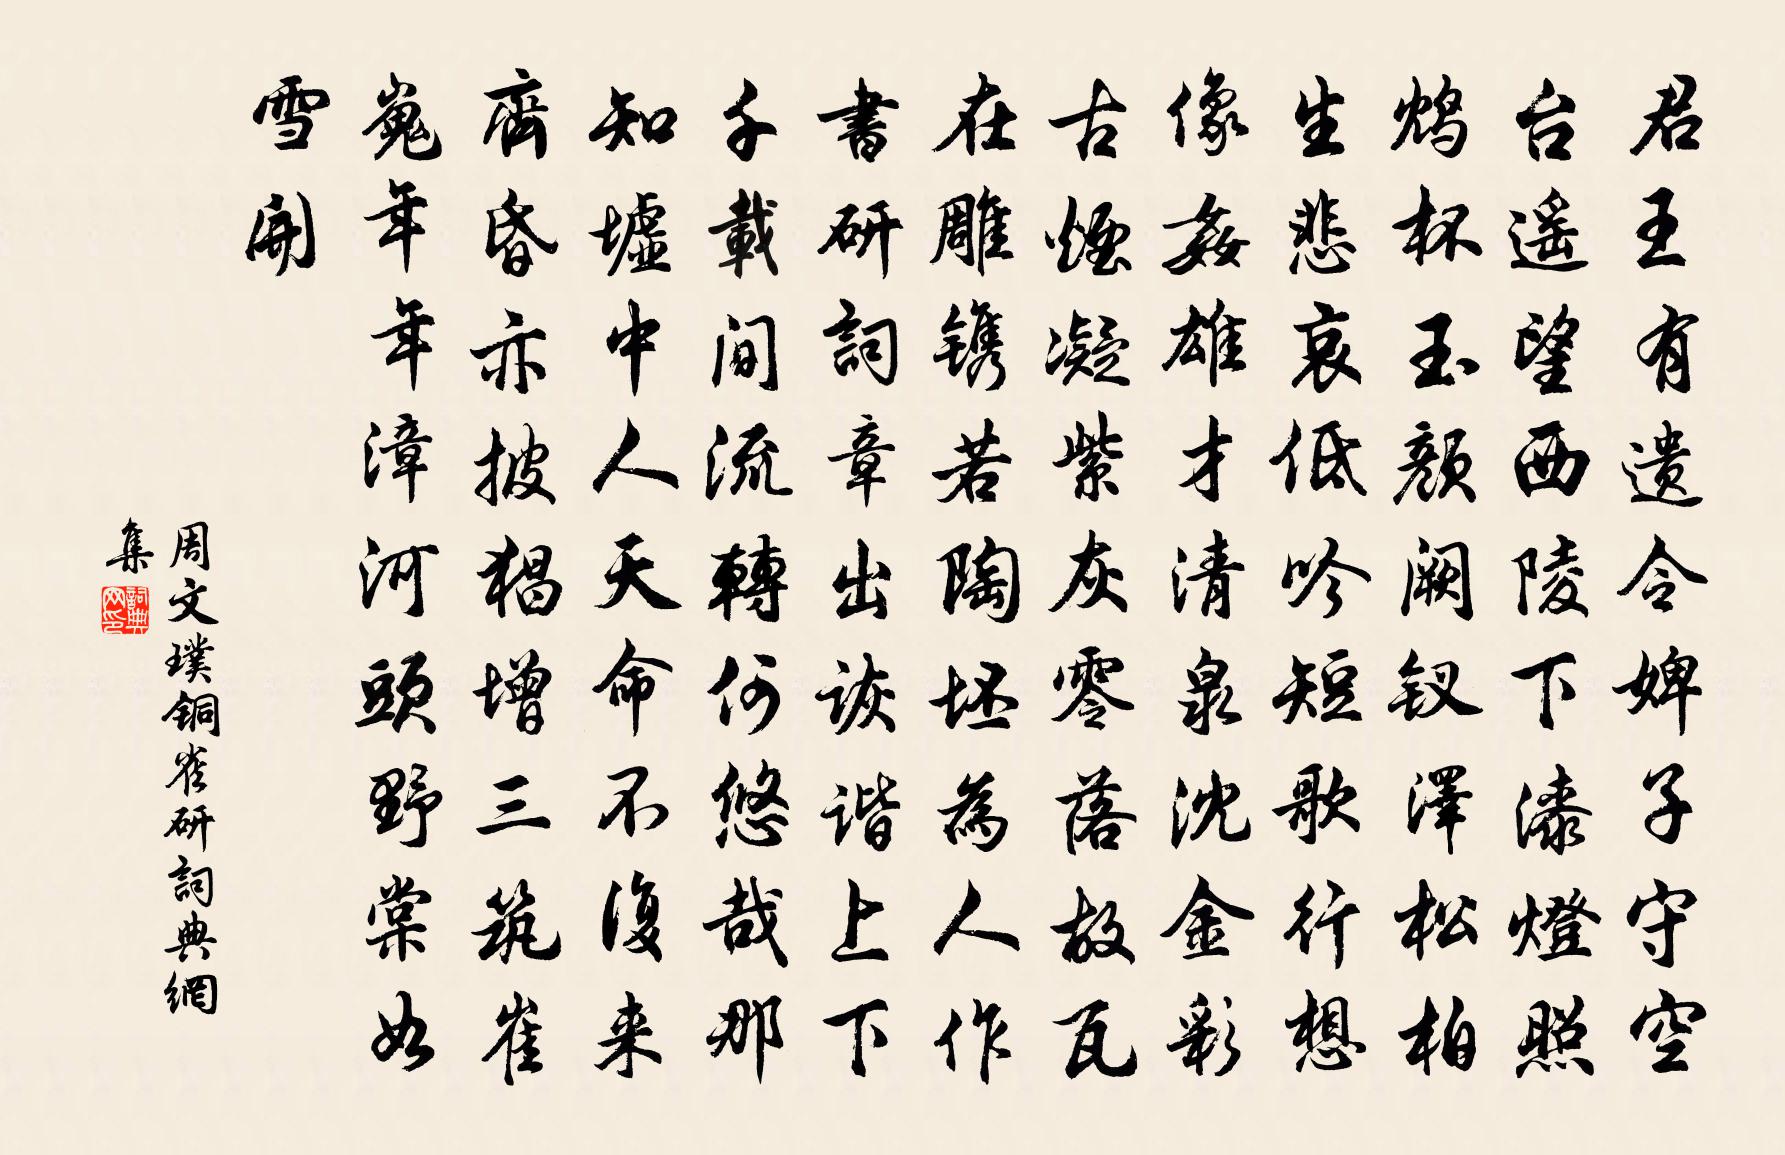 君王有遗令婢子守空
台遥望西陵下漆燈照
鴆杯玉顔阙钗澤松柏
生悲哀低吟短歌行想
像姦雄才清泉沈金彩
古煙凝紫灰零落故瓦
在雕镌若陶坯為人作
書研詞章出诙谐上下
千載间流轉何悠哉那
知墟中人天命不復来
齊昏亦披猖增三筑崔
嵬年年漳河頭野棠如
雪開
周文璞铜雀研詞典網
集
詞典网印